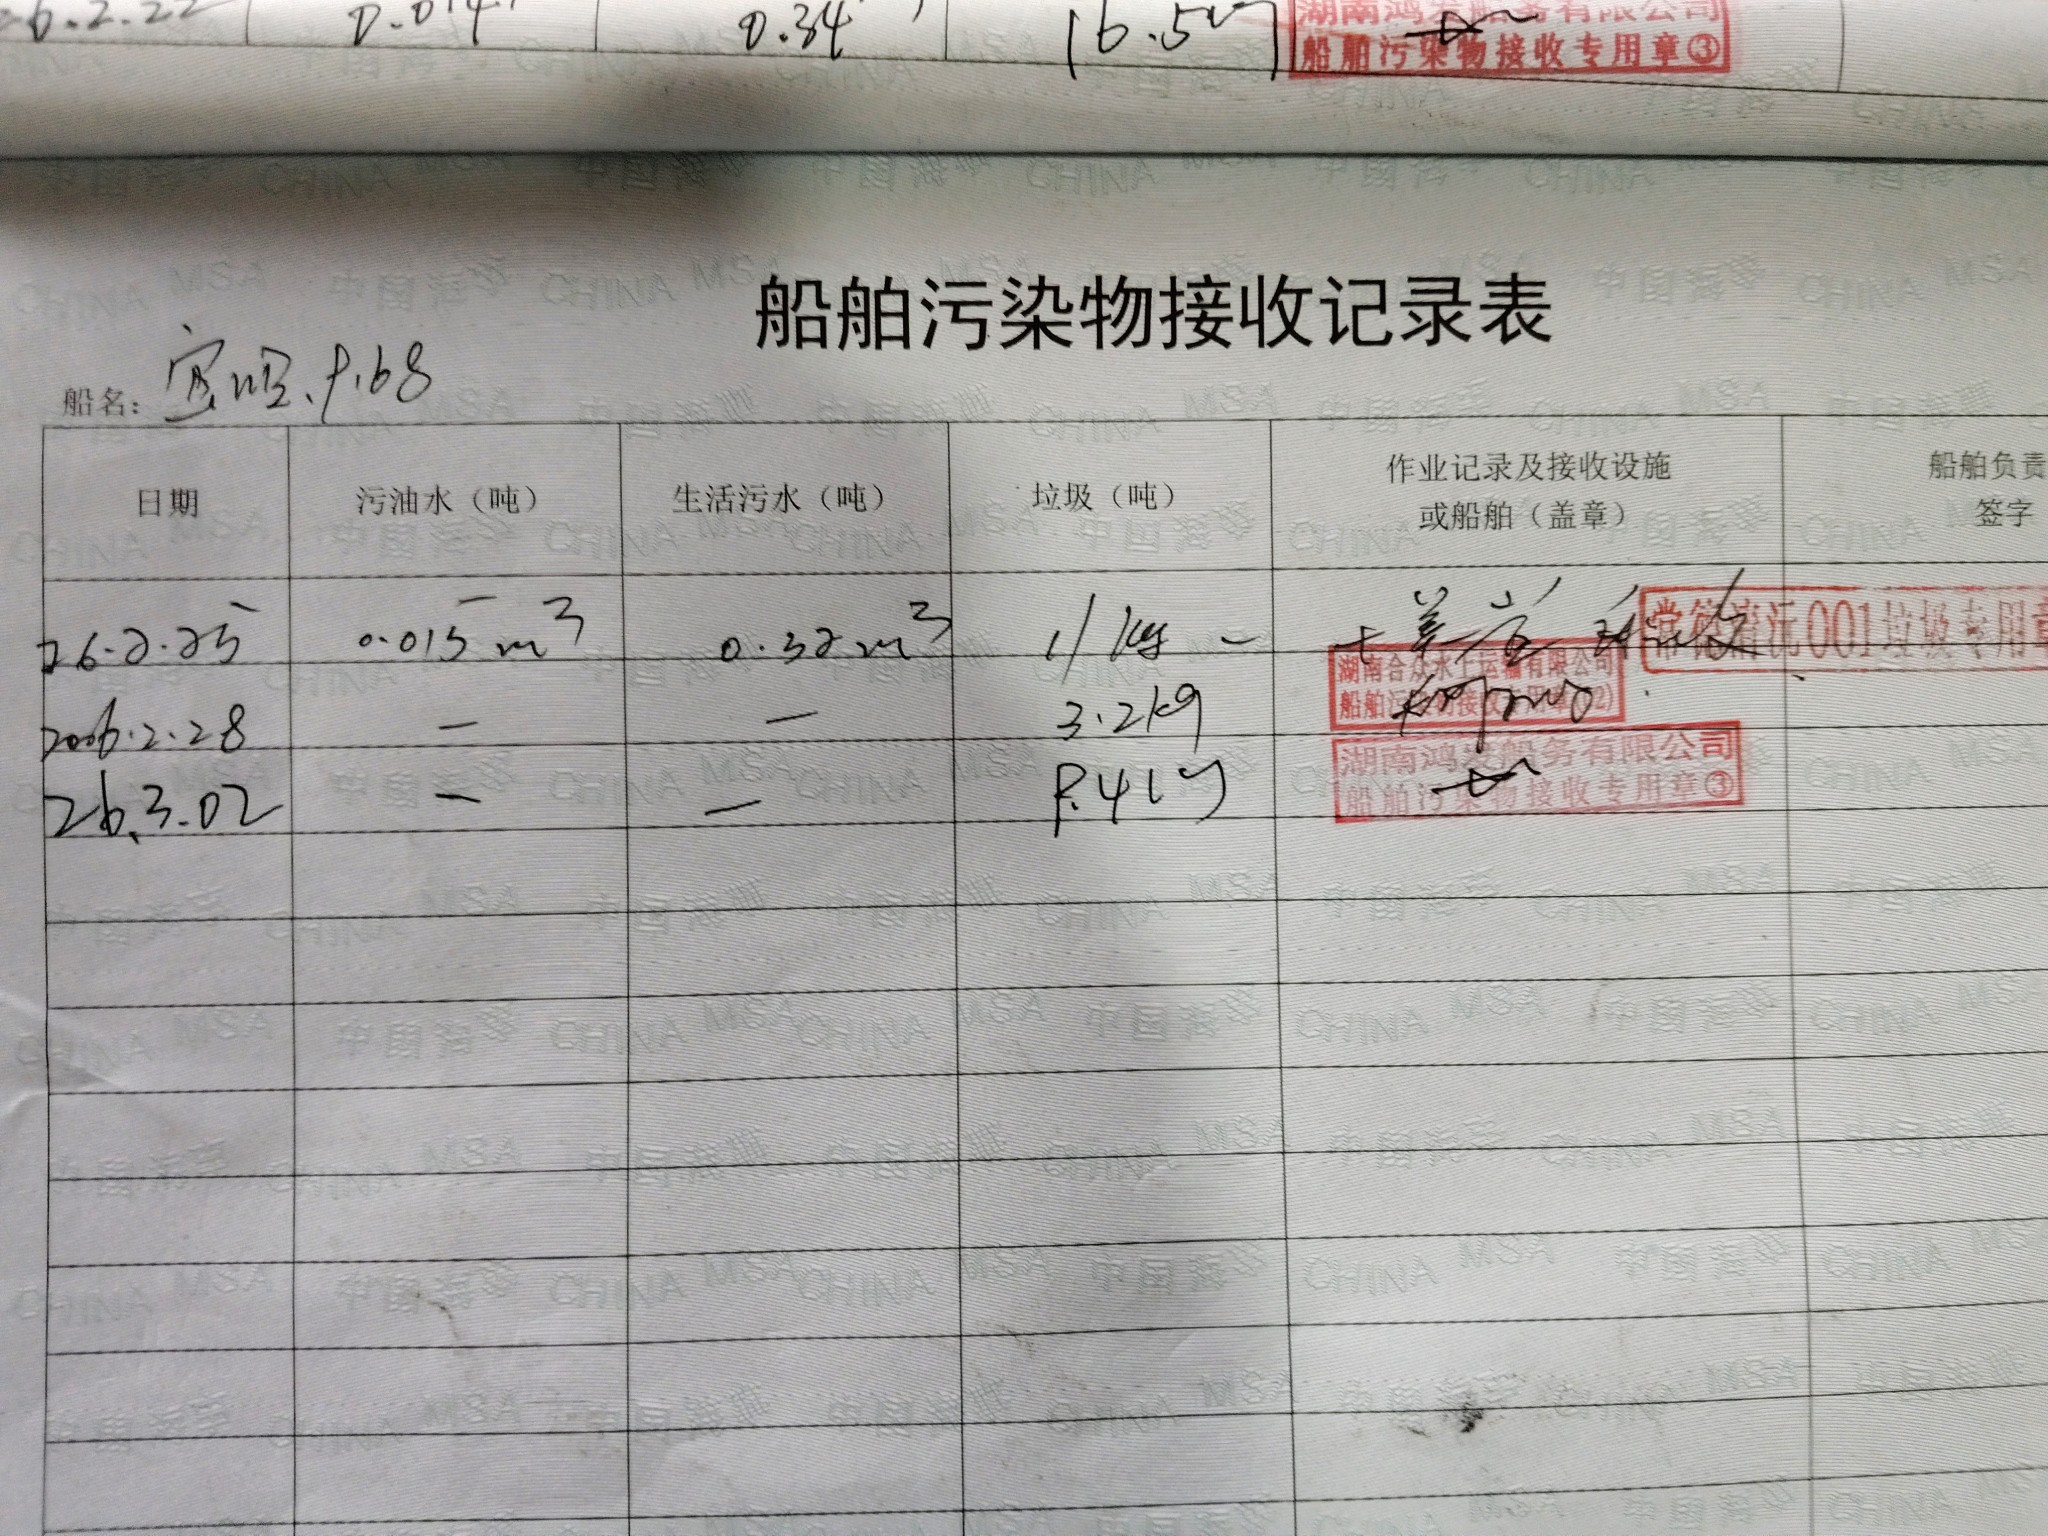 6.2.22 0.014 0.34 16.5kg 湖南鸿发船务有限公司
船舶污染物接收专用章③
船舶污染物接收记录表
船名: 168
日期 污油水（吨） 生活污水（吨） 垃圾（吨） 作业记录及接收设施 船舶负责
或船舶（盖章） 签字
26.2.25 0.015m³ 0.32m³ 11kg 001垃圾专用章
2026.2.28 — — 3.2kg 湖南合众水上运输有限公司
船舶污染物接收专用章(02)
26.3.02 — — 8.4kg 湖南鸿发船务有限公司
船舶污染物接收专用章③
中国海事 CHINA MSA